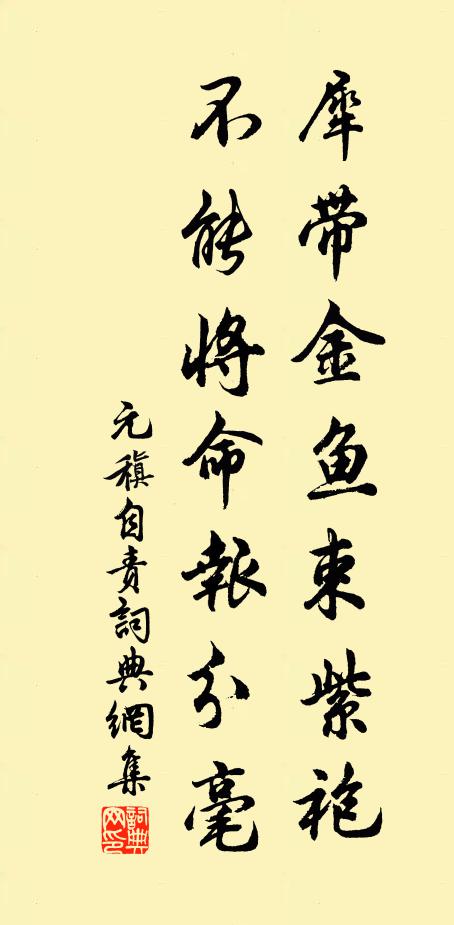 犀带金鱼束紫袍
不能将命報分毫
元稹自责詞典網集
詞典
网印